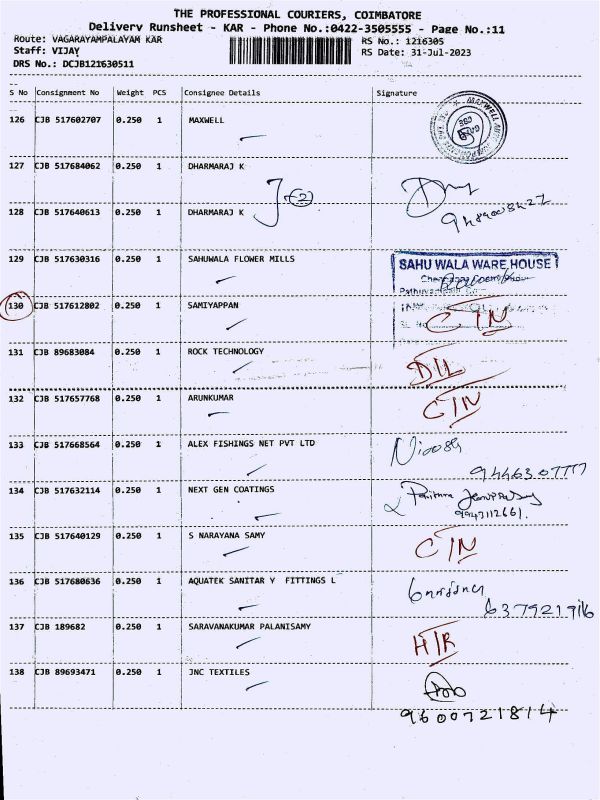 THE PROFESSIONAL COURIERS, COIMBATORE
Delivery Runsheet - KAR - Phone No.:0422-3505555 - Page No.:11
Route: VAGARAYAMPALAYAM KAR
RS No.: 1216305
Staff: VIJAY
RS Date: 31-Jul-2023
DRS No.: DCJB121630511
S No Consignment No Weight PCS Consignee Details Signature
126 CJB 517602707 0.250 1 MAXWELL
127 CJB 517684062 0.250 1 DHARMARAJ K
128 CJB 517640613 0.250 1 DHARMARAJ K
129 CJB 517630316 0.250 1 SAHUWALA FLOWER MILLS
SAHU WALA WARE HOUSE
130 CJB 517612802 0.250 1 SAMIYAPPAN C/N
131 CJB 89683084 0.250 1 ROCK TECHNOLOGY D/L
132 CJB 517657768 0.250 1 ARUNKUMAR C/N
133 CJB 517668564 0.250 1 ALEX FISHINGS NET PVT LTD
134 CJB 517632114 0.250 1 NEXT GEN COATINGS
9943112661.
135 CJB 517640129 0.250 1 S NARAYANA SAMY C/N
136 CJB 517680636 0.250 1 AQUATEK SANITAR Y FITTINGS L
137 CJB 189682 0.250 1 SARAVANAKUMAR PALANISAMY H/R
138 CJB 89693471 0.250 1 JNC TEXTILES
9600721814